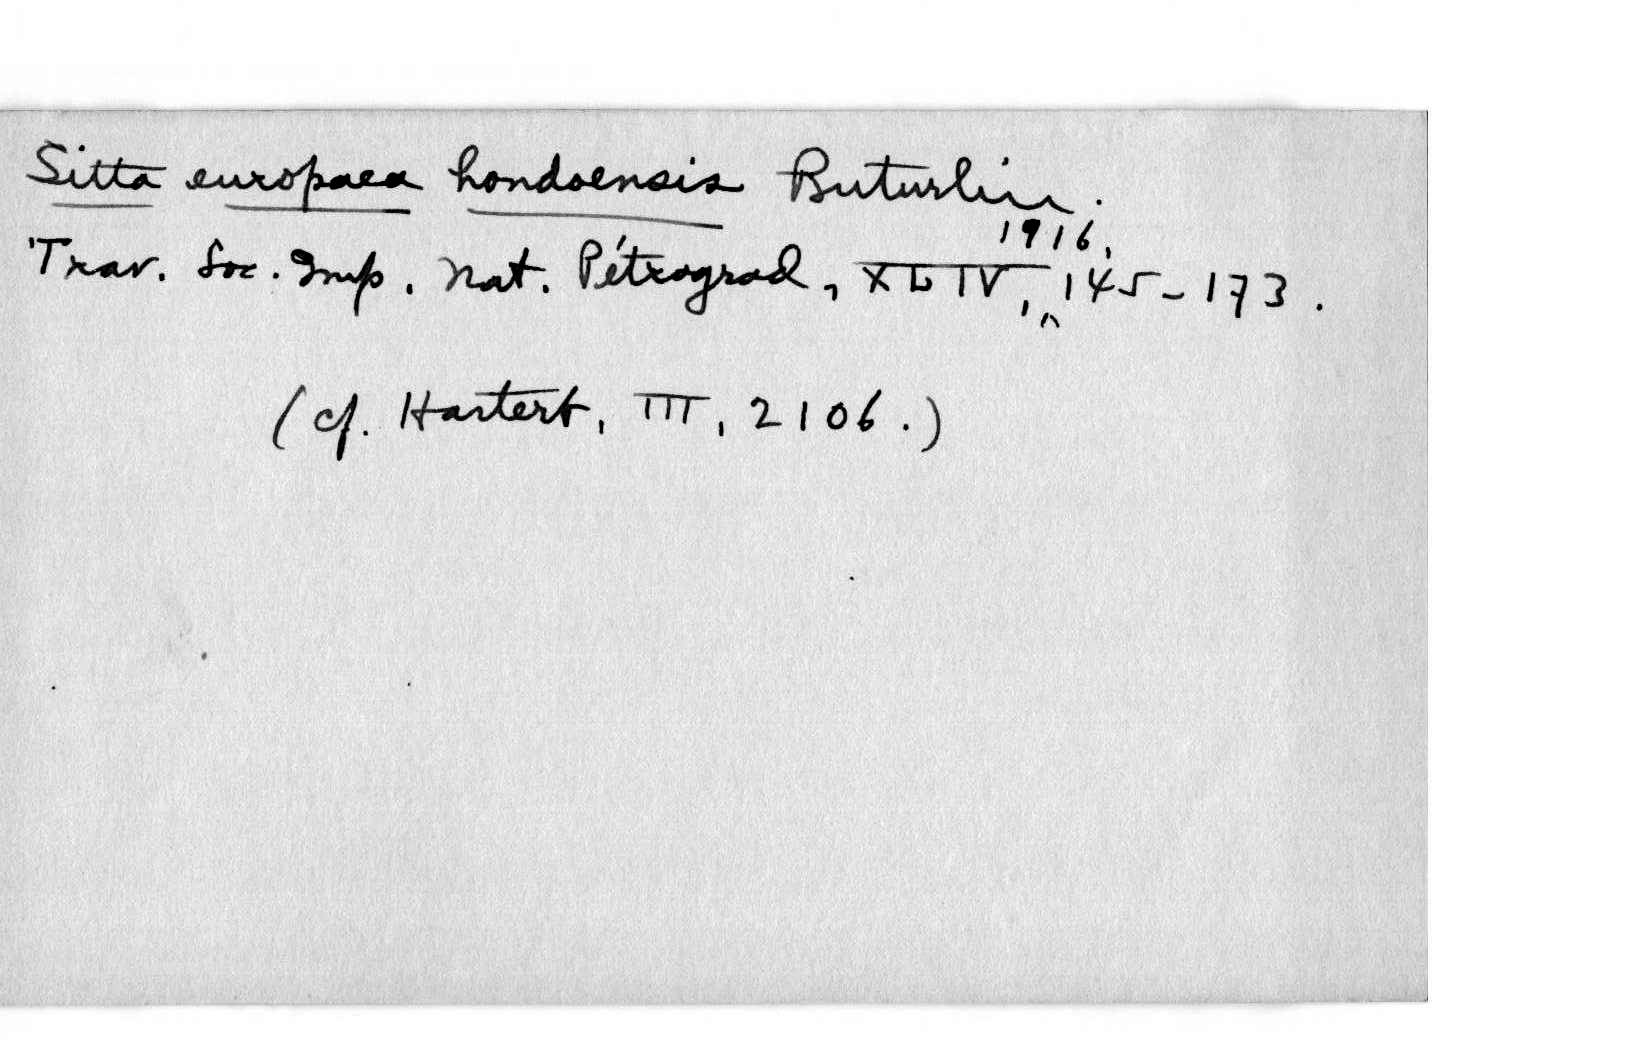 Sitta europaea hondoensis Buturlin.
Trav. Soc. Imp. Nat. Pétrograd, XLIV, 1916, 145-173.
(cf. Hartert, III, 2106.)